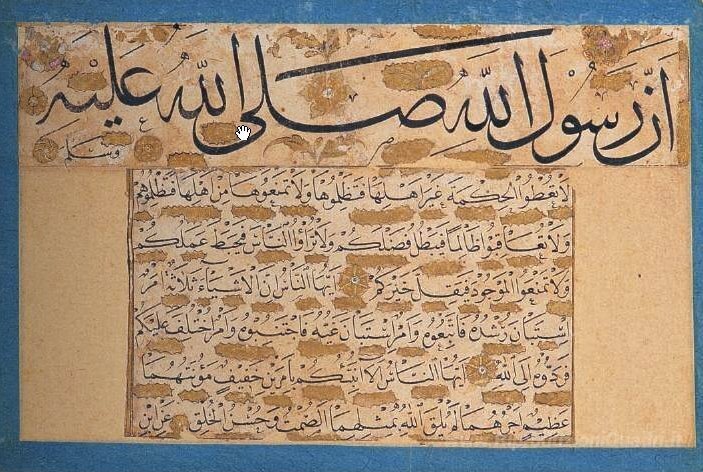 اَنَّ رَسُولَ اللّٰهِ صَلَّى اللّٰهُ عَلَيْهِ
وَسَلَّمَ
لَا تُعْطُوا الْحِكْمَةَ غَيْرَ اَهْلِهَا فَتَظْلِمُوهَا وَلَا تَمْنَعُوهَا مِنْ اَهْلِهَا فَتَظْلِمُوهُمْ
وَلَا تُعَاقِبُوا ظَالِمًا فَيَبْطُلَ فَضْلُكُمْ وَلَا تُرَاؤُا النَّاسَ فَيَحْبَطَ عَمَلُكُمْ
وَلَا تَمْنَعُوا الْمَوْجُودَ فَيَقِلَّ خَيْرُكُمْ اَيُّهَا النَّاسُ اِنَّ الْاَشْيَاءَ ثَلَاثَةٌ اَمْرٌ
اسْتَبَانَ رُشْدُهُ فَاتَّبِعُوهُ وَاَمْرٌ اسْتَبَانَ غَيُّهُ فَاجْتَنِبُوهُ وَاَمْرٌ اخْتُلِفَ عَلَيْكُمْ
فَرُدُّوهُ اِلَى اللّٰهِ اَيُّهَا النَّاسُ اَلَا اُنَبِّئُكُمْ بِاَمْرَيْنِ خَفِيفٍ مَؤُنَتُهُمَا
عَظِيمٍ اَجْرُهُمَا لَمْ يُلْقَ اللّٰهُ بِمِثْلِهِمَا الصَّمْتُ وَحُسْنُ الْخُلُقِ عَنِ ابْنِ